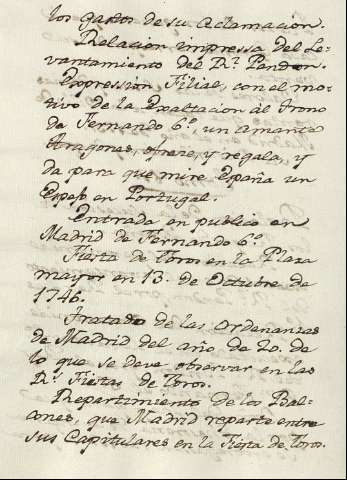 los gastos de su Aclamacion.
Relacion impressa del Le-
vantamiento del R.l Pendon.
Expression, Filial, con el mo-
tivo de la Exaltacion al trono
de Fernando 6.º, un amante
Aragones, ofreze, y regala, y
da para que mire España un
Espejo en Portugal.
Entrada en publico en
Madrid de Fernando 6.º
Fiesta de Toros en la Plaza
mayor en 13. de Octubre de
1746.
Tratado de las ordenanzas
de Madrid del año de 20. de
lo que se deve observar en las
R.s Fiestas de Toros.
Repartimiento de los Bal-
cones, que Madrid reparte entre
sus Capitulares en la Fiesta de Toros.